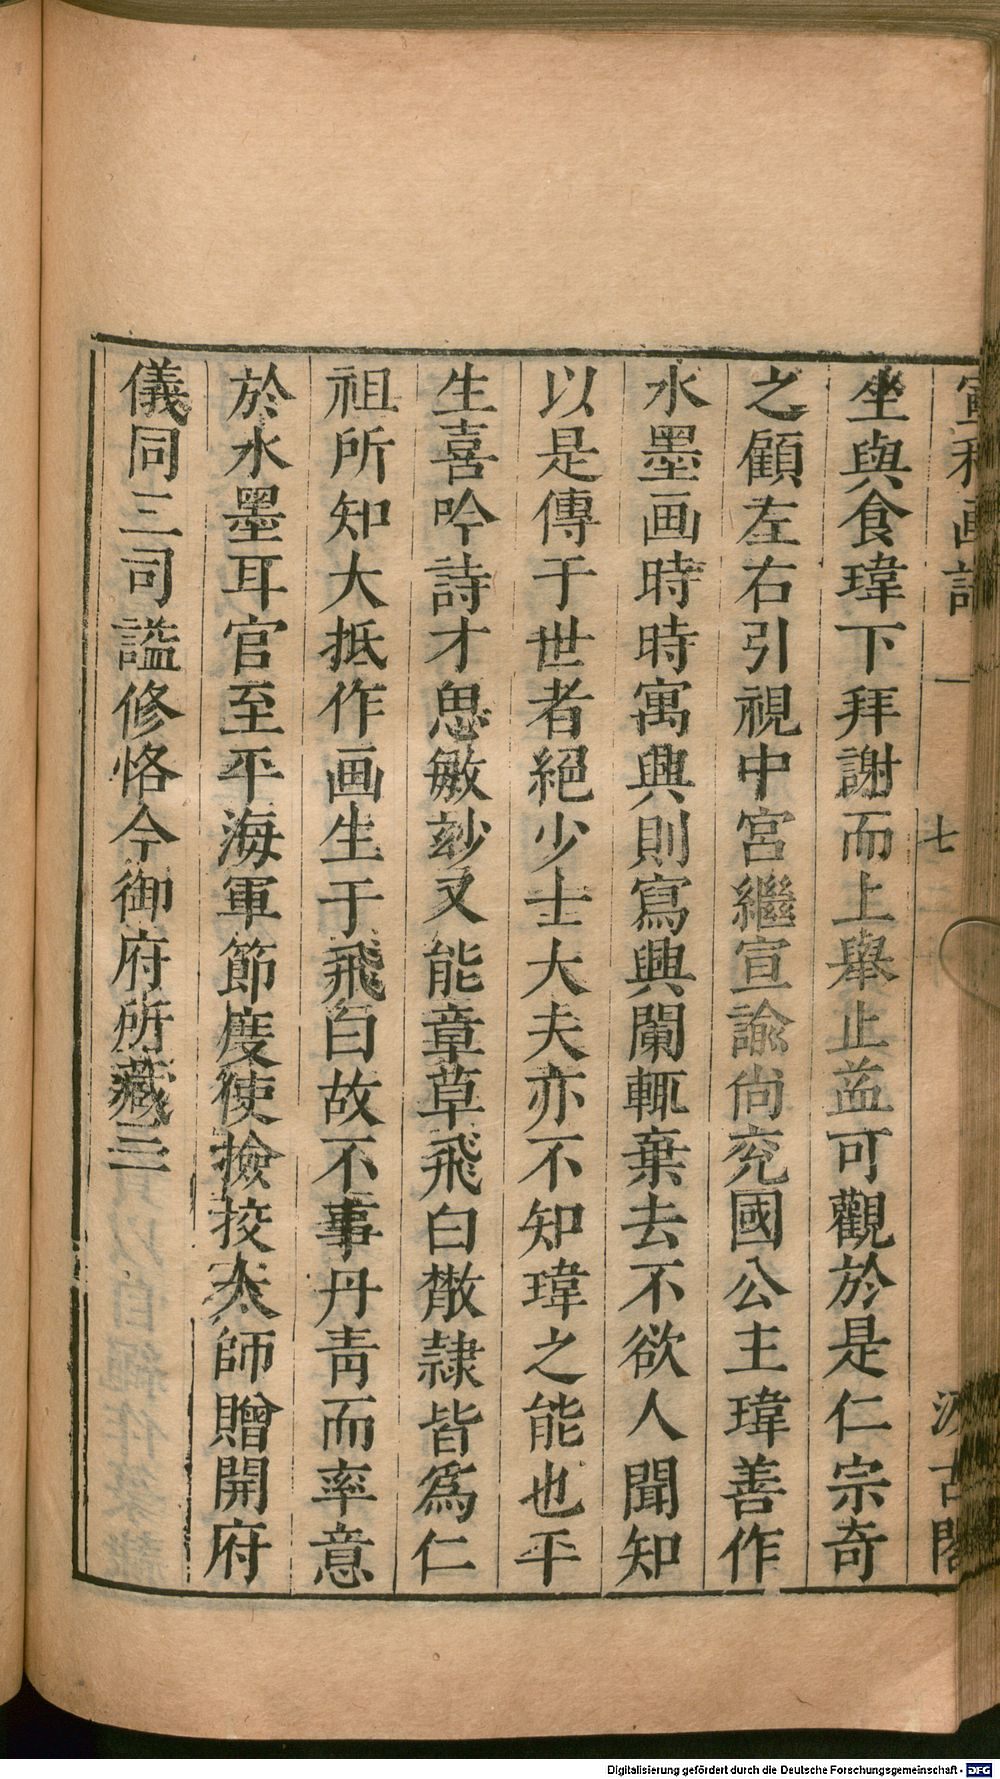 宣和画譜 一 七 汲古閣
坐與食瑋下拜謝而上舉止益可觀於是仁宗奇
之顧左右引視中宮繼宣諭尚兖國公主瑋善作
水墨画時時寓興則寫興闌輒棄去不欲人聞知
以是傳于世者絕少士大夫亦不知瑋之能也平
生喜吟詩才思敏玅又能章草飛白散隷皆爲仁
祖所知大抵作画生于飛白故不事丹靑而率意
於水墨耳官至平海軍節度使撿挍太師贈開府
儀同三司謚修恪今御府所藏三
Digitalisierung gefördert durch die Deutsche Forschungsgemeinschaft - DFG